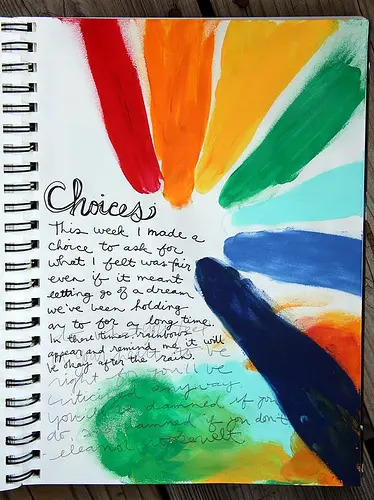 Choices
This week I made a
choice to ask for
what I felt was fair
even if it meant
letting go of a dream
we've been holding
on to for a long time.
In those times, rainbows
appear and remind me it will
be okay after the rain.
right for you'll be
criticized anyway.
You'll be damned if you
do, damned if you don't
-eleanor roosevelt